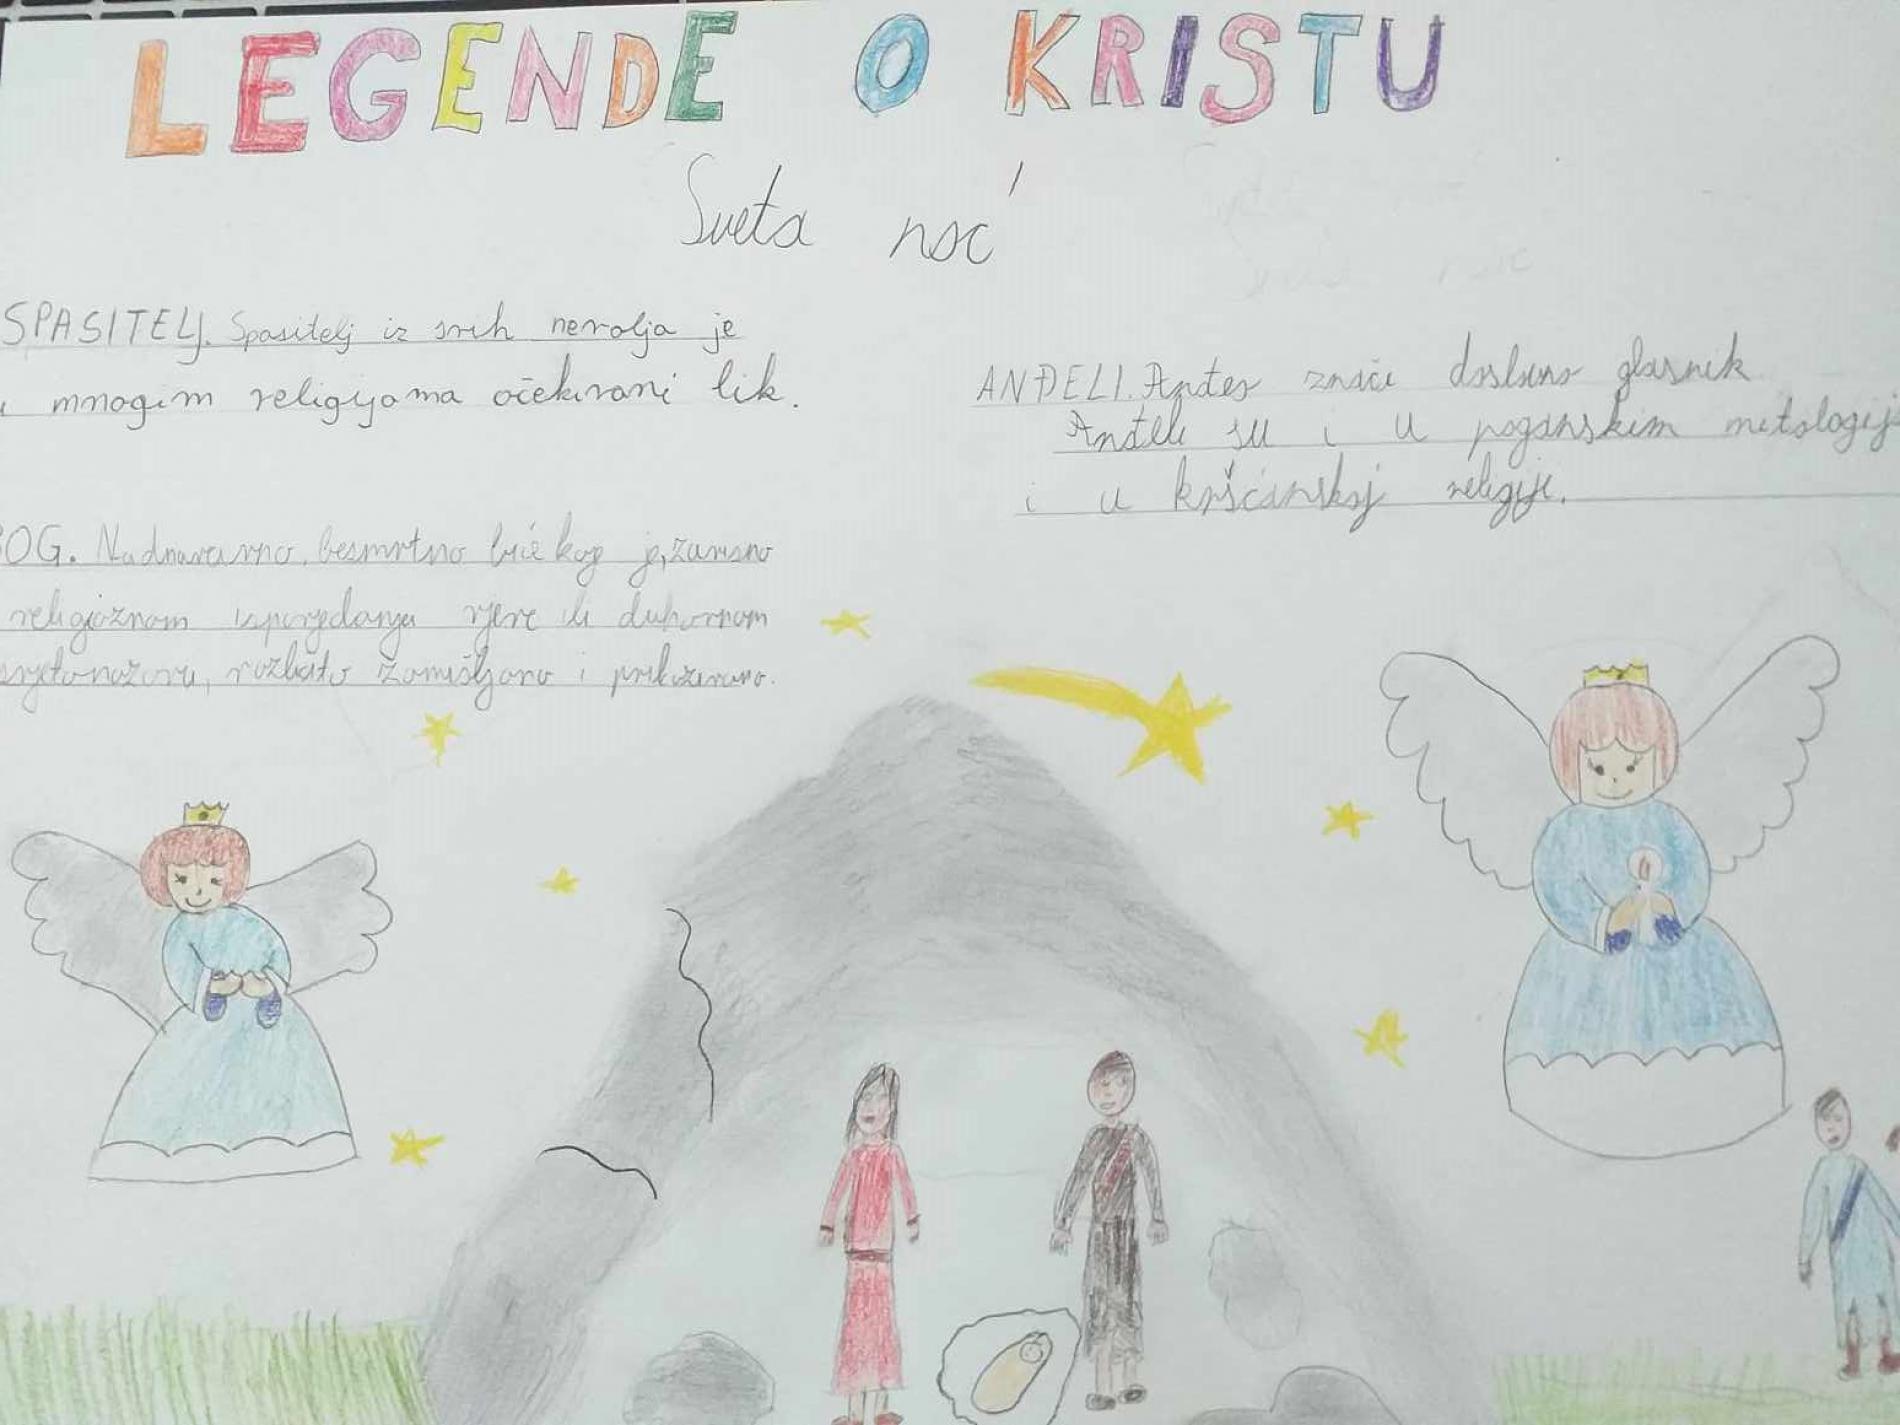 LEGENDE O KRISTU
Sveta noć
SPASITELJ. Spasitelj iz svih nevolja je
u mnogim religijama očekivani lik.
ANĐELI. Anđeo znači doslovno glasnik
Anđeli su i u poganskim mitologija
i u kršćanskoj religiji.
BOG. Nadnaravno, besmrtno biće koje je, zavisno
religioznom ispovjedanju vjere ili duhovnom
svjetonazoru, različito zamišljano i prikazivano.